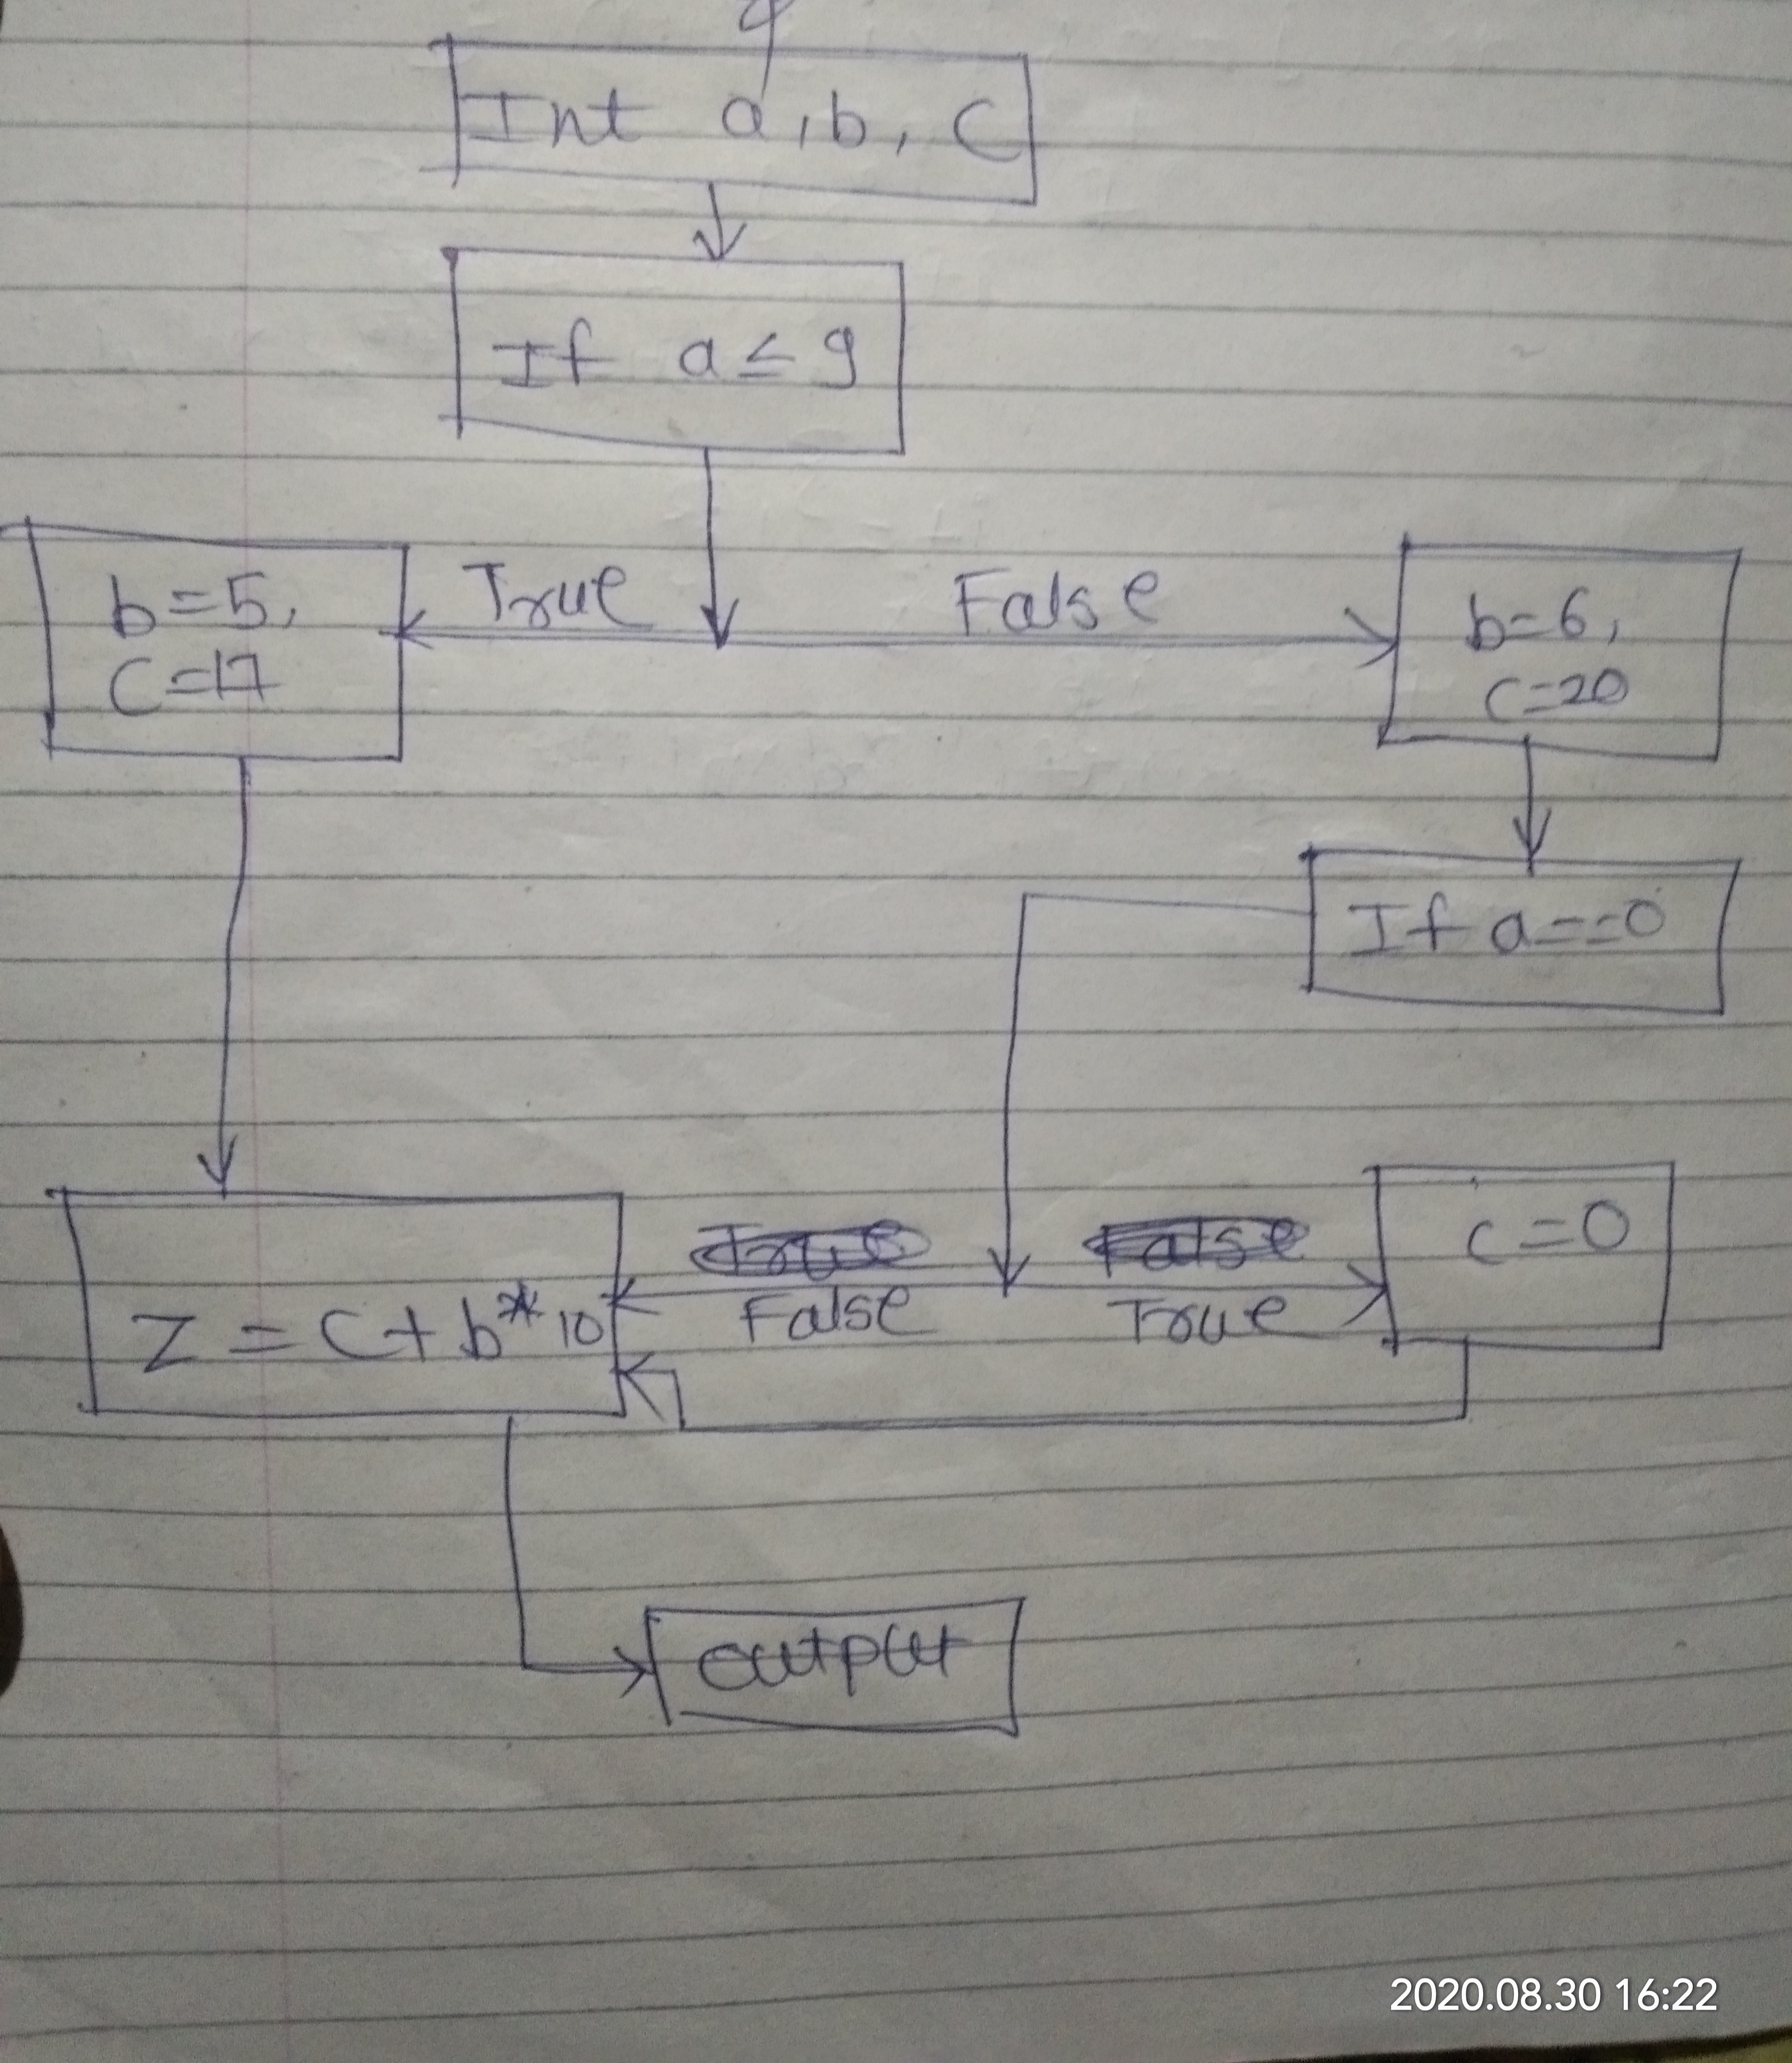 Int a, b, c
If a ≤ 9
True
False
b=5,
C=17
b=6,
c=20
If a==0
True
False
c=0
False
True
Z = C+ b*10
output
2020.08.30 16:22